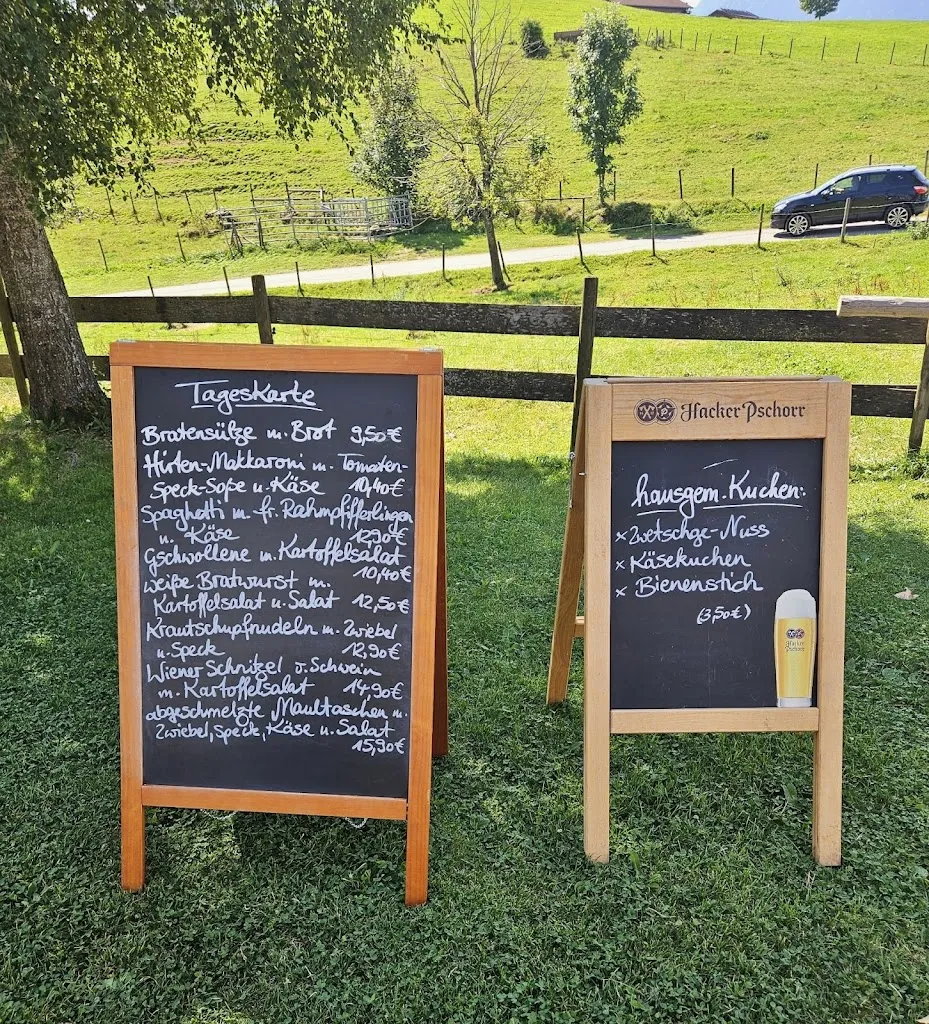 Tageskarte
Bratensülze m. Brot 9,50€
Hirten-Makkaroni m. Tomaten-
Speck-Soße u. Käse 10,40€
Spaghetti m. fr. Rahmpfifferlingen
u. Käse 12,90€
Gschwollene m. Kartoffelsalat
10,40€
weiße Bratwurst m.
Kartoffelsalat u. Salat 12,50€
Krautschupfnudeln m. Zwiebel
u. Speck 12,90€
Wiener Schnitzel v. Schwein
m. Kartoffelsalat 14,90€
abgeschmelzte Maultaschen m.
Zwiebel, Speck, Käse u. Salat
15,90€
Hacker Pschorr
hausgem. Kuchen:
x Zwetschge-Nuss
x Käsekuchen
x Bienenstich
(3,50€)
Hacker
Pschorr